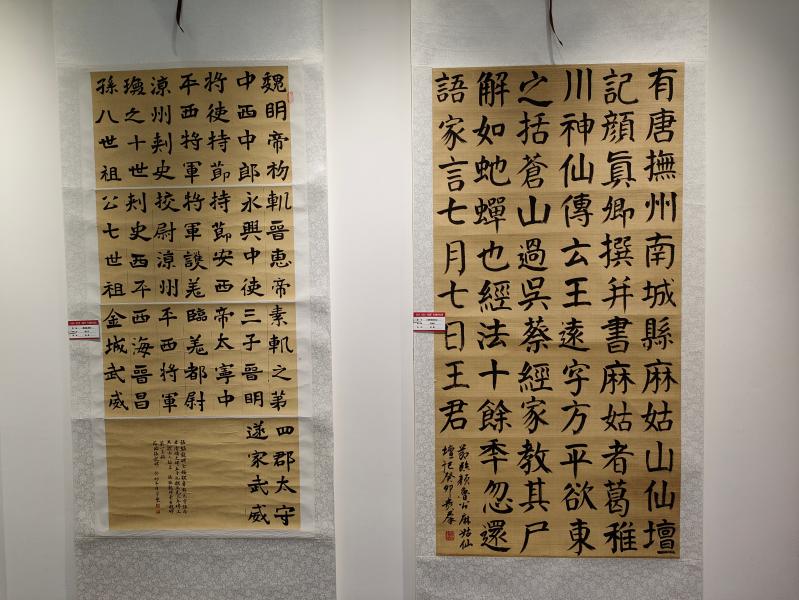 有唐撫州南城縣麻姑山仙壇
記顏真卿撰并書麻姑者葛稚
川神仙傳云王遠字方平欲東
之括蒼山過吳蔡經家教其尸
解如虵蟬也經法十餘年忽還
語家言七月七日王君
節臨顏魯公麻姑仙
壇記癸卯
魏明帝初
中西中郎
將使持節
平西將軍
涼州刺史
瓊之十世
孫八世祖
軌晉惠帝
永興中使
持節安西
將軍護羌
校尉涼州
刺史西平
公七世祖
素軌之第
三子晉明
帝太寧中
臨羌都尉
平西將軍
西海晉昌
金城武威
四郡太守
遂家武威